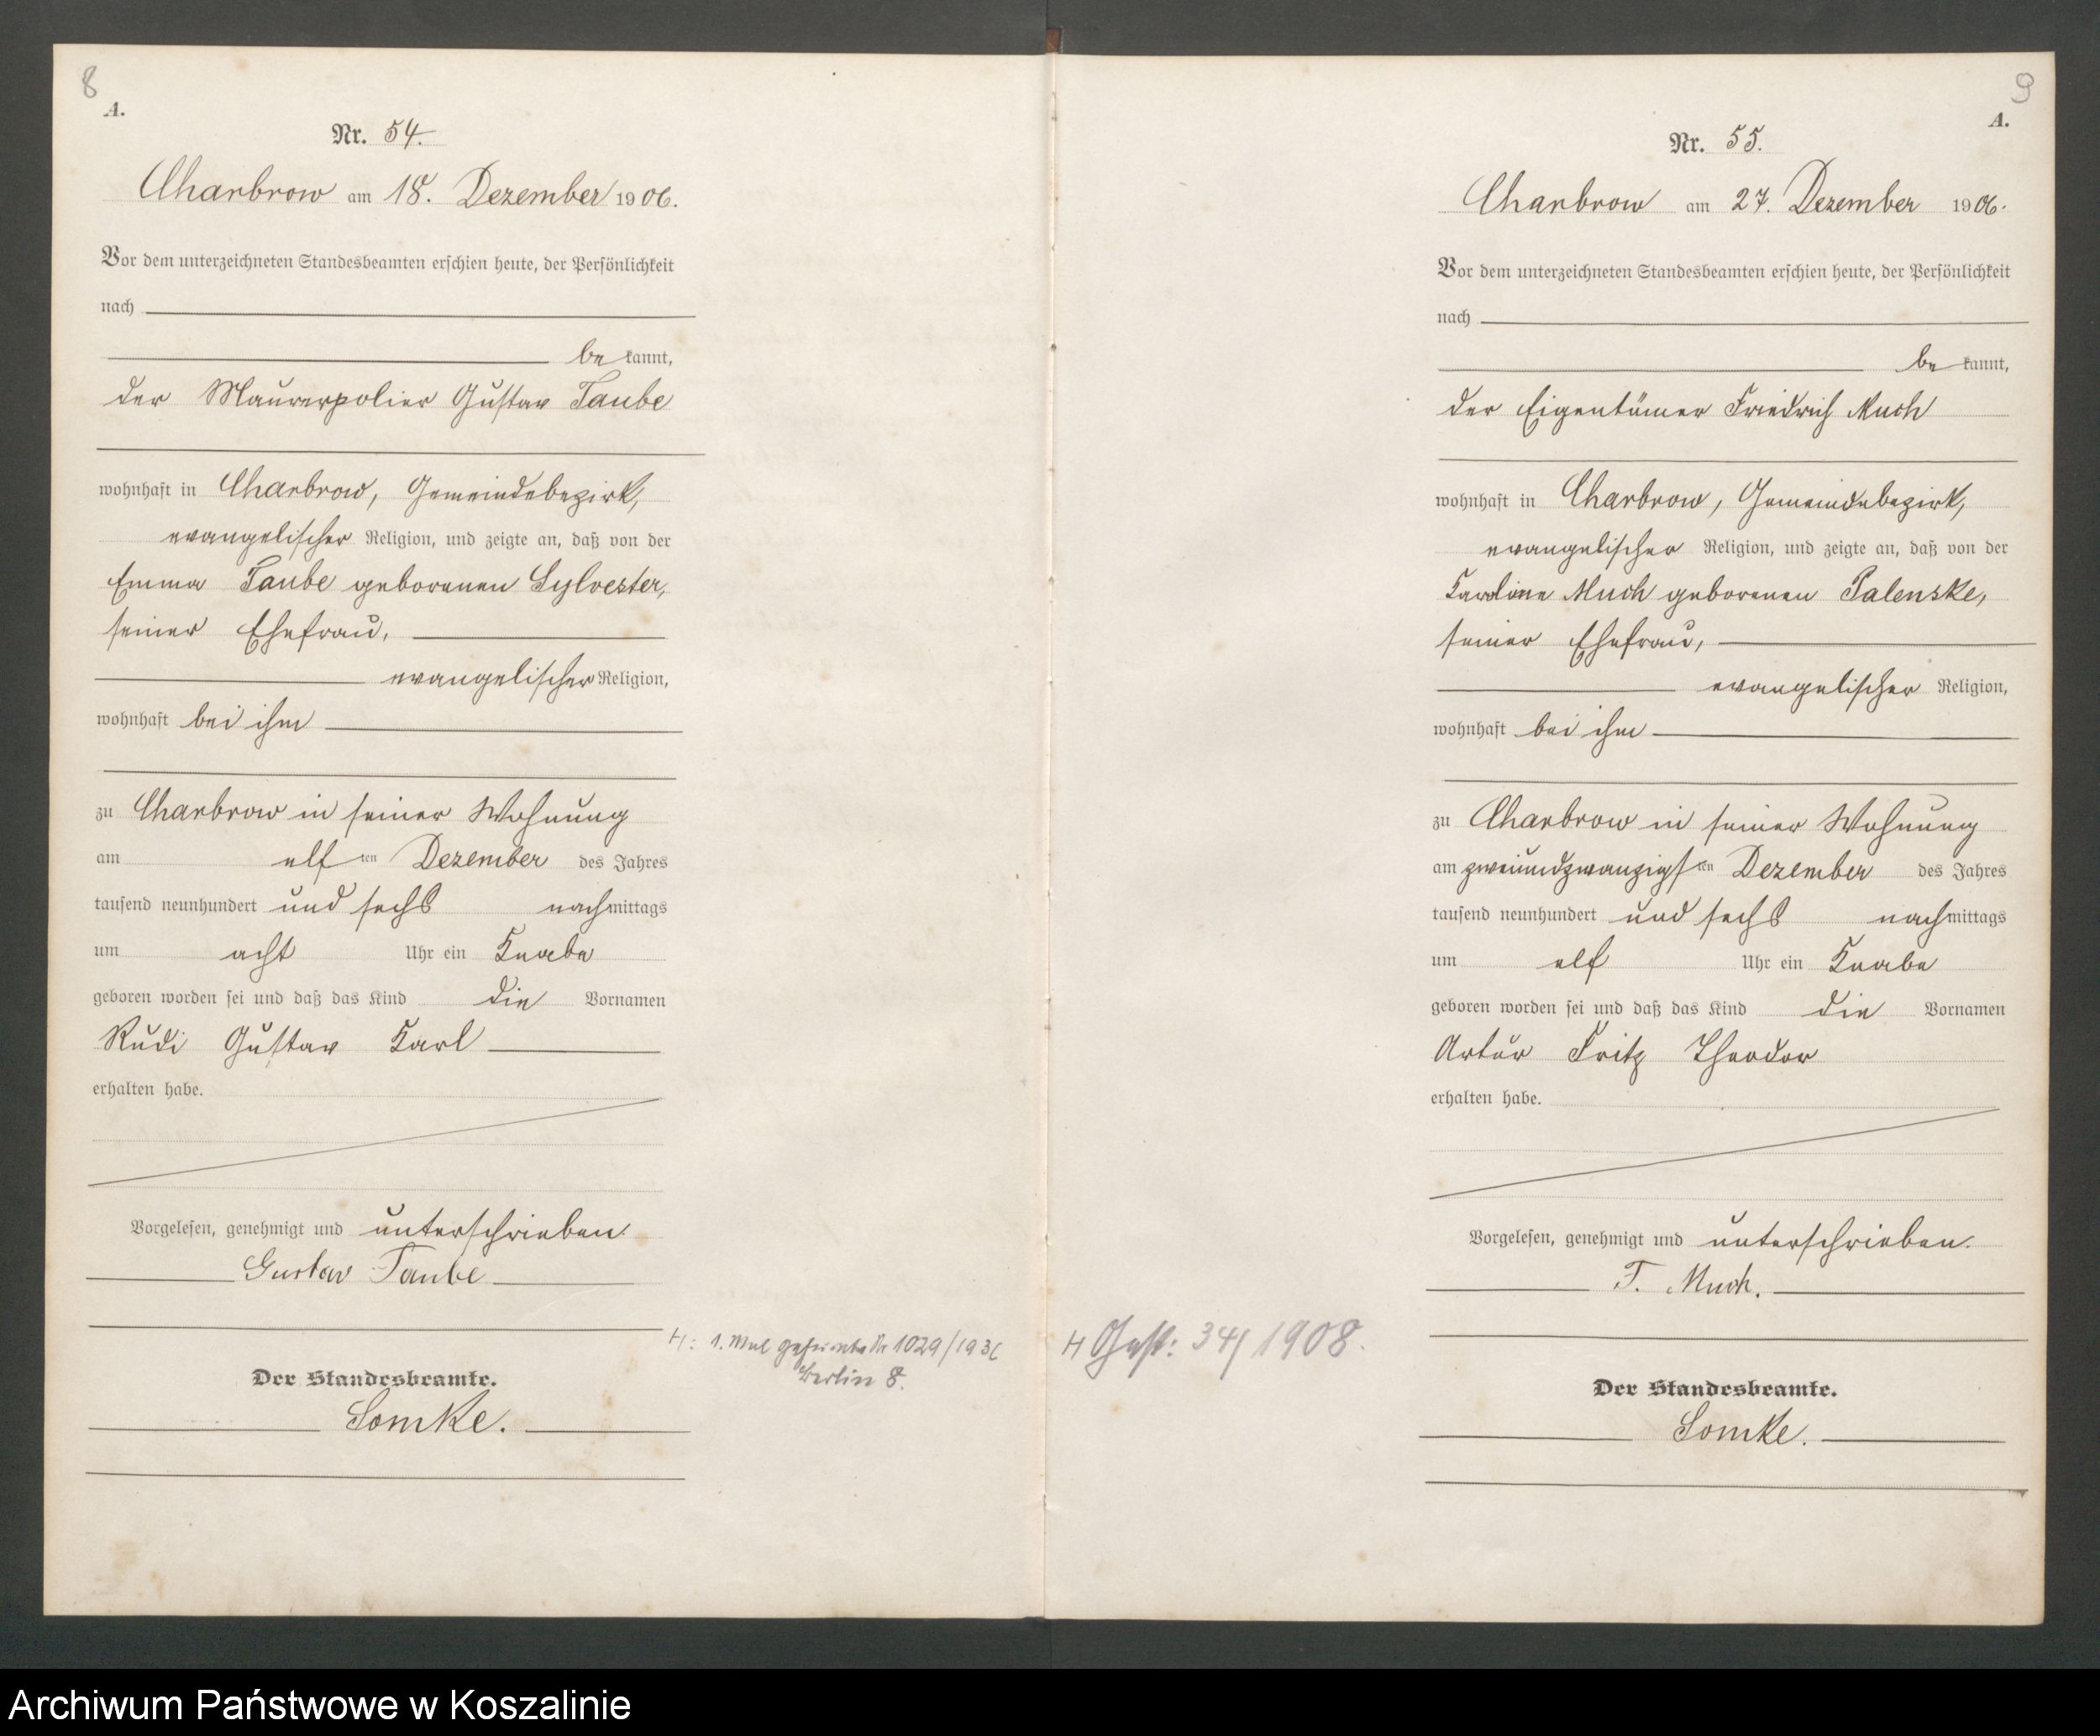 8
A.
Nr. 54.
Charbrow am 18. Dezember 1906.
Vor dem unterzeichneten Standesbeamten erschien heute, der Persönlichkeit
nach
bekannt,
der Maurerpolier Gustav Taube
wohnhaft in Charbrow, Gemeindebezirk,
evangelischer Religion, und zeigte an, daß von der
Emma Taube geborenen Sylvester,
seiner Ehefrau,
evangelischer Religion,
wohnhaft bei ihm
zu Charbrow in seiner Wohnung
am elften Dezember des Jahres
tausend neunhundert und sechs nachmittags
um acht Uhr ein Knabe
geboren worden sei und daß das Kind die Vornamen
Rudi Gustav Karl
erhalten habe.
Vorgelesen, genehmigt und unterschrieben.
Gustav Taube
H: 1. Mal geheiratet Nr 1029/193
Berlin 8.
Der Standesbeamte.
Lomke.
9
A.
Nr. 55.
Charbrow am 27. Dezember 1906.
Vor dem unterzeichneten Standesbeamten erschien heute, der Persönlichkeit
nach
bekannt,
der Eigentümer Friedrich Much
wohnhaft in Charbrow, Gemeindebezirk,
evangelischer Religion, und zeigte an, daß von der
Karoline Much geborenen Palenske,
seiner Ehefrau,
evangelischer Religion,
wohnhaft bei ihm
zu Charbrow in seiner Wohnung
am zweiundzwanzigsten Dezember des Jahres
tausend neunhundert und sechs nachmittags
um elf Uhr ein Knabe
geboren worden sei und daß das Kind die Vornamen
Artur Fritz Theodor
erhalten habe.
Vorgelesen, genehmigt und unterschrieben.
F. Much.
H Gest: 34/1908.
Der Standesbeamte.
Lomke.
Archiwum Państwowe w Koszalinie